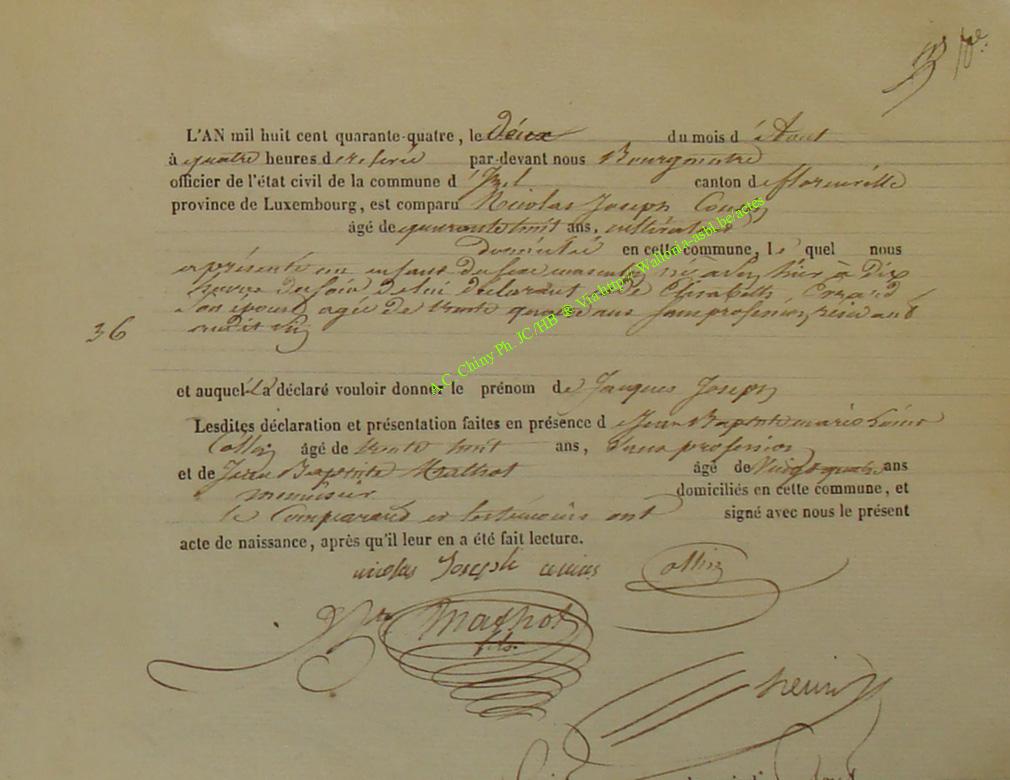 L'AN mil huit cent quarante-quatre, le deux du mois d'Aout
à quatre heures de relevée par-devant nous Bourgmestre
officier de l'état civil de la commune d'Izel canton de florenville
province de Luxembourg, est comparu Nicolas Joseph
âgé de quarante huit ans, cultivateur
domicilié en cette commune, lequel nous
a présenté un enfant du sexe masculin né avant hier à Dix
heures du soir de lui déclarant et de Elisabeth
son épouse agée de trente quatre ans sans profession, résidant
36
audit
et auquel il a déclaré vouloir donner le prénom de Jacques Joseph
Lesdites déclaration et présentation faites en présence de Jean Baptiste marie
Collin âgé de trente huit ans, sans profession
et de Jean Baptiste Mathot âgé de Vingt quatre ans
menuisier domiciliés en cette commune, et
le Comparant et les témoins ont signé avec nous le présent
acte de naissance, après qu'il leur en a été fait lecture.
nicolas Joseph Collin
Mathot
fils
A.C. Chiny Ph. JC/HB ® Via http:// Wallonia-asbl.be/actes